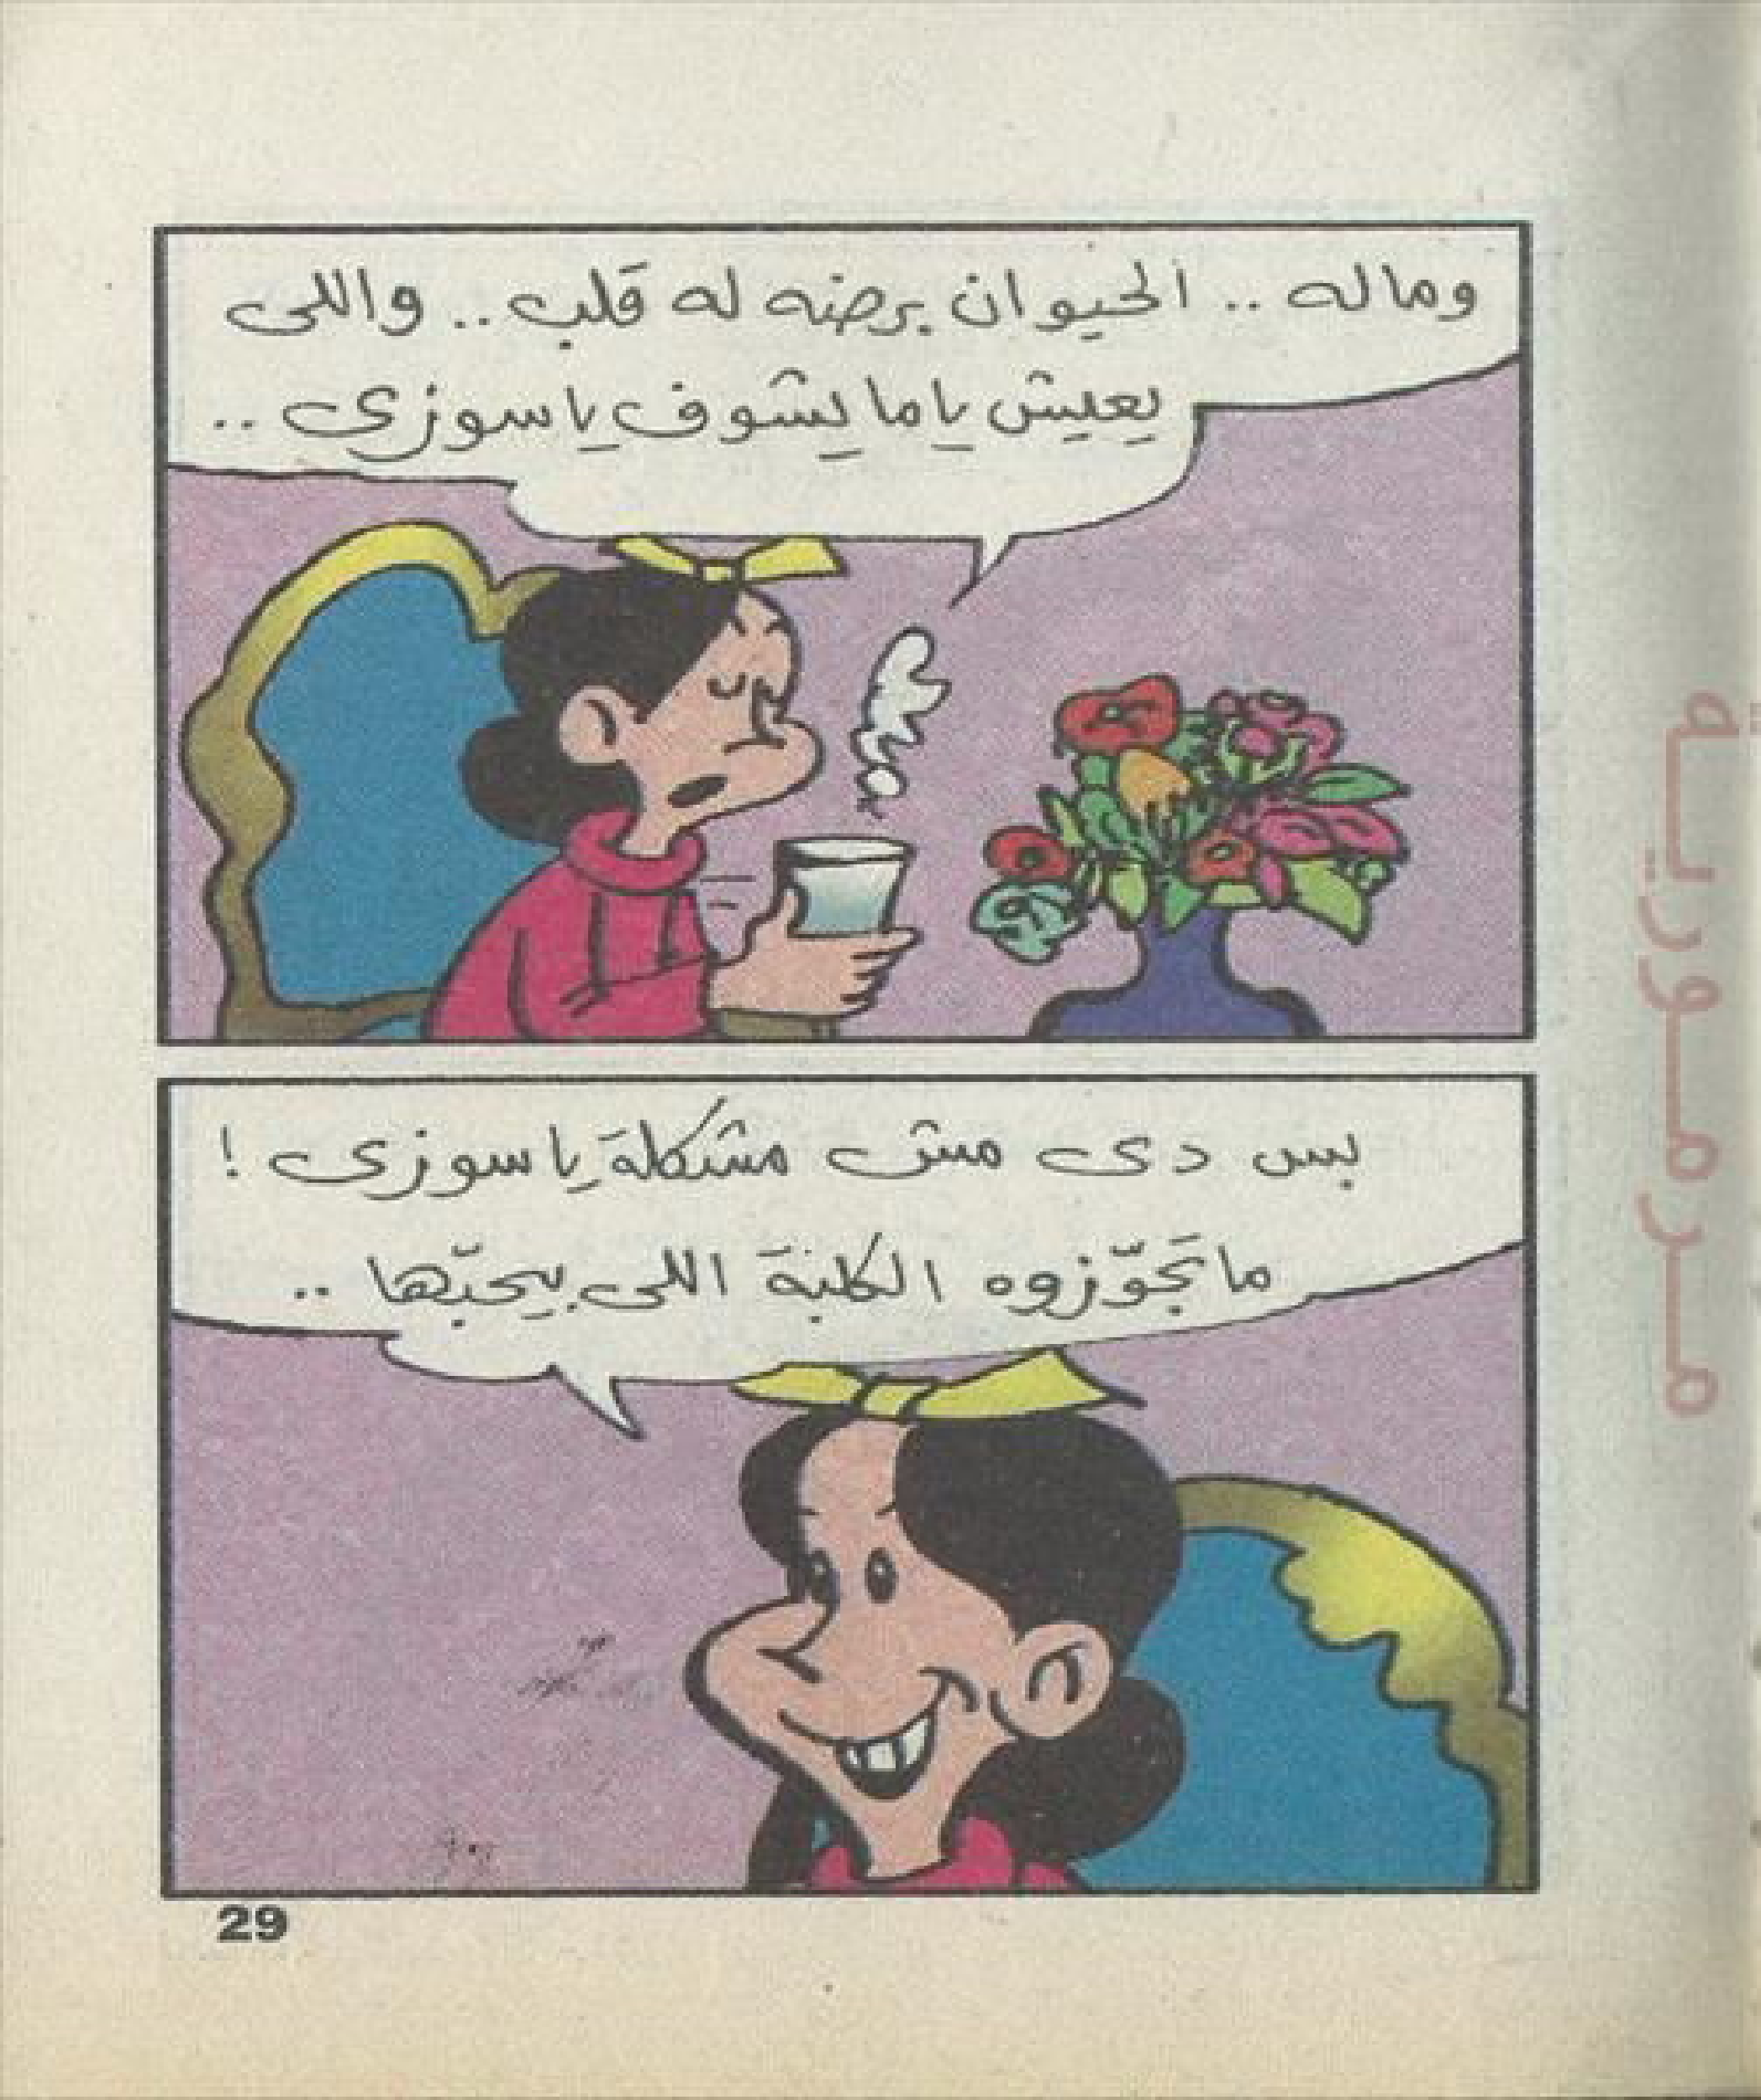 وماله .. الحيوان برضه له قلب .. واللى
يعيش ياما يشوف ياسوزى ..
بس دى مش مشكلة ياسوزى !
ماتجَوّزوه الكلبة اللى بيحبّها ..
29
مرمورية